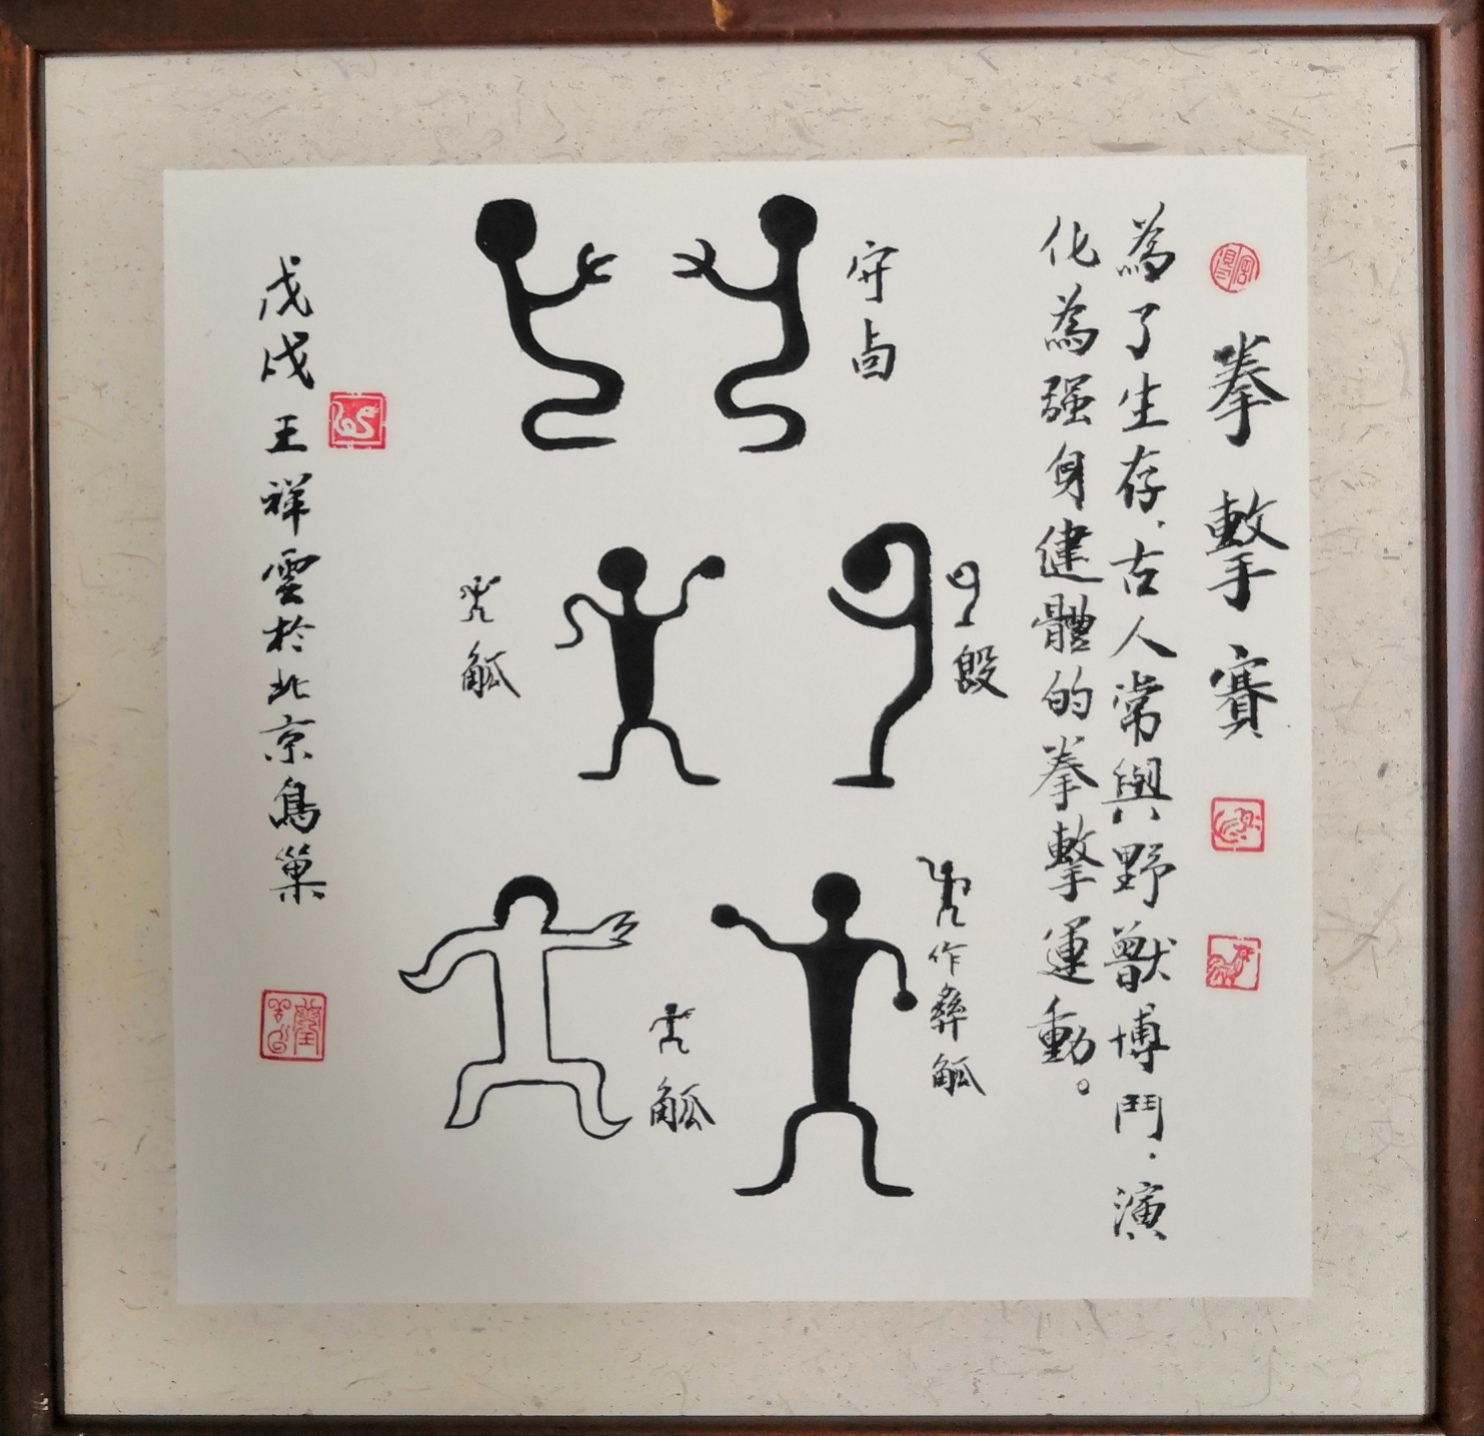 拳擊賽
為了生存.古人常與野獸博鬥.演
化為强身健體的拳擊運動。
守卣
作彝觚
觚
觚
戊戌王祥雲於北京鳥巢